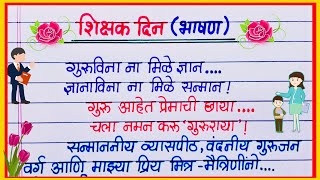 शिक्षक दिन (भाषण)
गुरुविना ना मिळे ज्ञान....
ज्ञानाविना ना मिळे सन्मान!
गुरु आहेत प्रेमाची छाया....
चला नमन करू 'गुरुराया'!
सन्माननीय व्यासपीठ, वंदनीय गुरुजन
वर्ग आणि माझ्या प्रिय मित्र-मैत्रिणींनो....